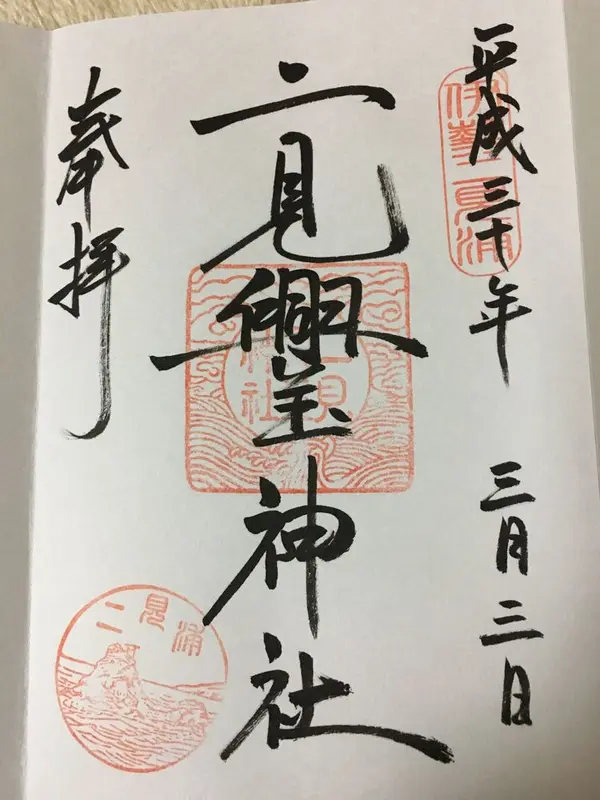 平成三十年 三月三日
伊勢二見浦
二見興玉神社
奉拝
二見浦